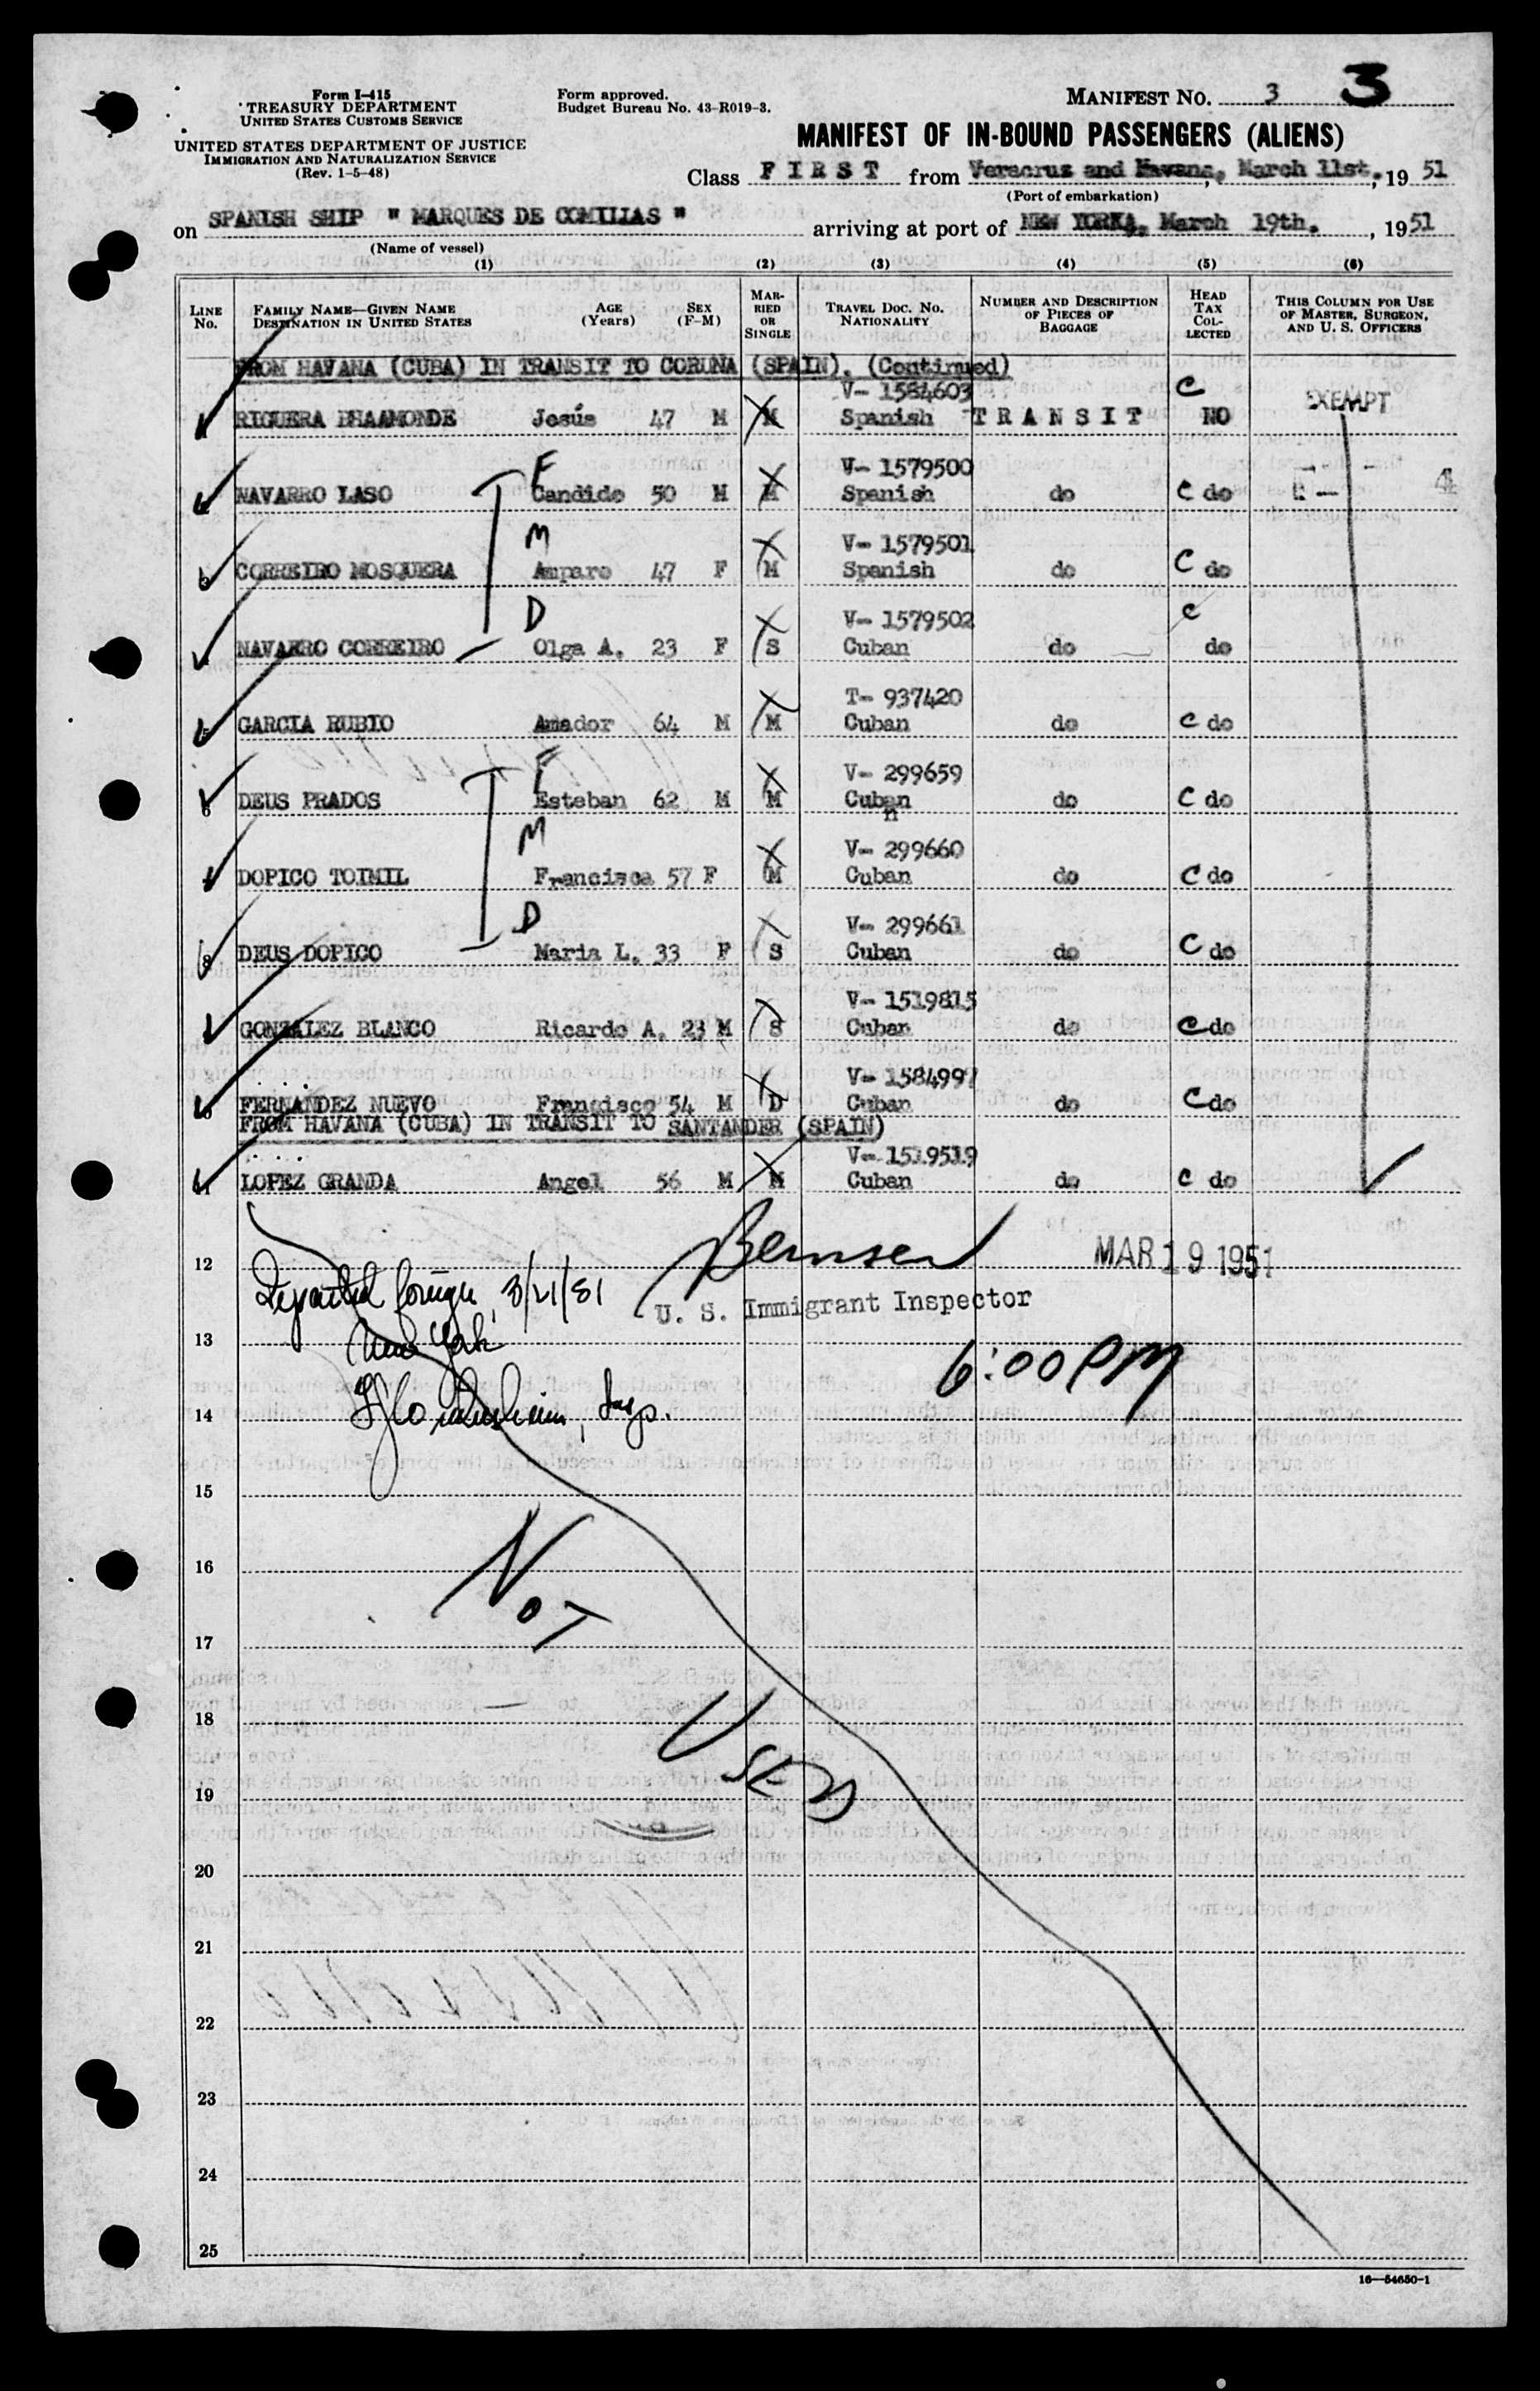 Form I-415
TREASURY DEPARTMENT
UNITED STATES CUSTOMS SERVICE
UNITED STATES DEPARTMENT OF JUSTICE
IMMIGRATION AND NATURALIZATION SERVICE
(Rev. 1-5-48)
Form approved.
Budget Bureau No. 43-R019-3.
MANIFEST NO. 3 3
MANIFEST OF IN-BOUND PASSENGERS (ALIENS)
Class F I R S T from Veracruz and Havana, March 11st., 1951
(Port of embarkation)
on SPANISH SHIP " MARQUES DE COMILIAS " arriving at port of NEW YORK, March 19th. , 1951
(Name of vessel)
(1) (2) (3) (4) (5) (6)
LINE No. FAMILY NAME—GIVEN NAME DESTINATION IN UNITED STATES AGE (Years) SEX (F-M) MARRIED OR SINGLE TRAVEL DOC. NO. NATIONALITY NUMBER AND DESCRIPTION OF PIECES OF BAGGAGE HEAD TAX COLLECTED THIS COLUMN FOR USE OF MASTER, SURGEON, AND U. S. OFFICERS
FROM HAVANA (CUBA) IN TRANSIT TO CORUNA (SPAIN). (Continued)
V- 1584603 C EXEMPT
RIGUERA BHAAMONDE Jesús 47 M M Spanish T R A N S I T NO
F V- 1579500
NAVARRO LASO Candido 50 M M Spanish do C do 4
M V- 1579501
CORREIRO MOSQUERA Amparo 47 F M Spanish do C do
D V- 1579502 C
NAVARRO CORREIRO Olga A. 23 F S Cuban do do
T- 937420
5 GARCIA RUBIO Amador 64 M M Cuban do C do
F V- 299659
6 DEUS PRADOS Esteban 62 M M Cuban do C do
n
M V- 299660
DOPICO TOIMIL Francisca 57 F M Cuban do C do
D V- 299661
8 DEUS DOPICO Maria L. 33 F S Cuban do C do
V- 1519815
GONZALEZ BLANCO Ricardo A. 23 M S Cuban do C do
V- 1584997
FERNANDEZ NUEVO Francisco 54 M D Cuban do C do
FROM HAVANA (CUBA) IN TRANSIT TO SANTANDER (SPAIN)
V- 1519519
11 LOPEZ GRANDA Angel 56 M M Cuban do C do
12 Bernsen MAR 19 1951
Departed foreign 3/21/51
U. S. Immigrant Inspector
13 New York
6:00 PM
14 Insp.
15
16
NOT
17
18
USED
19
20
21
22
23
24
25
16—54650-1